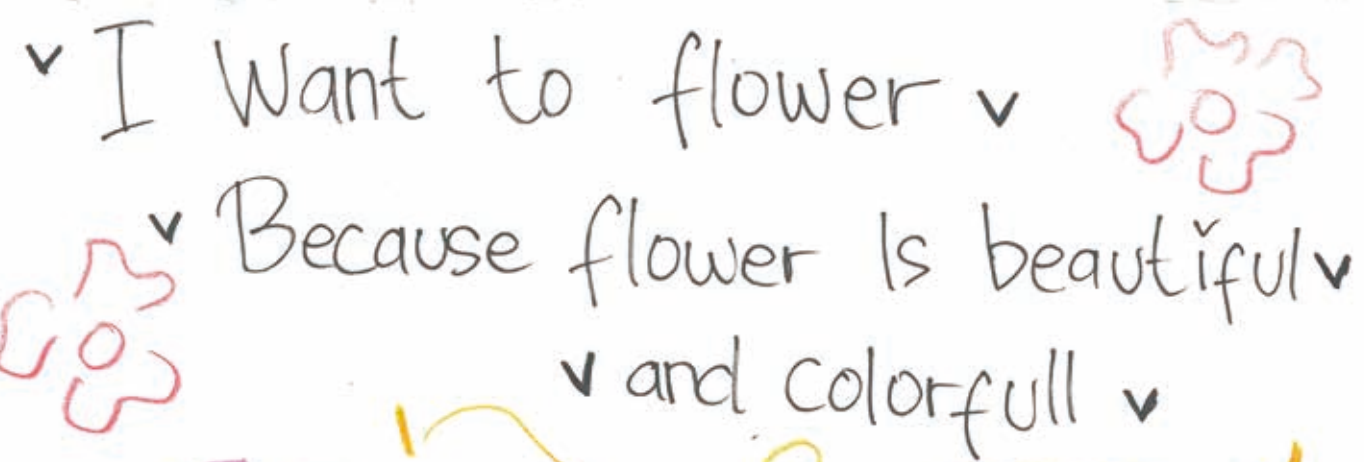 I Want to flower
Because flower Is beautiful
and Colorfull